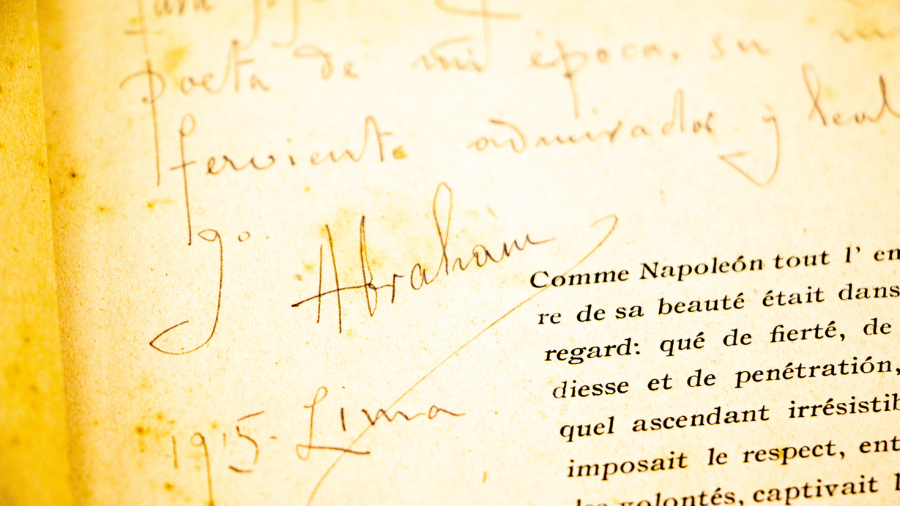 poeta de mi época, su
ferviente admirador y leal
Jo. Abraham
1915. Lima
Comme Napoleón tout l' en
re de sa beauté était dans
regard: qué de fierté, de
diesse et de penétratión,
quel ascendant irrésistib
imposait le respect, ent
volontés, captivait